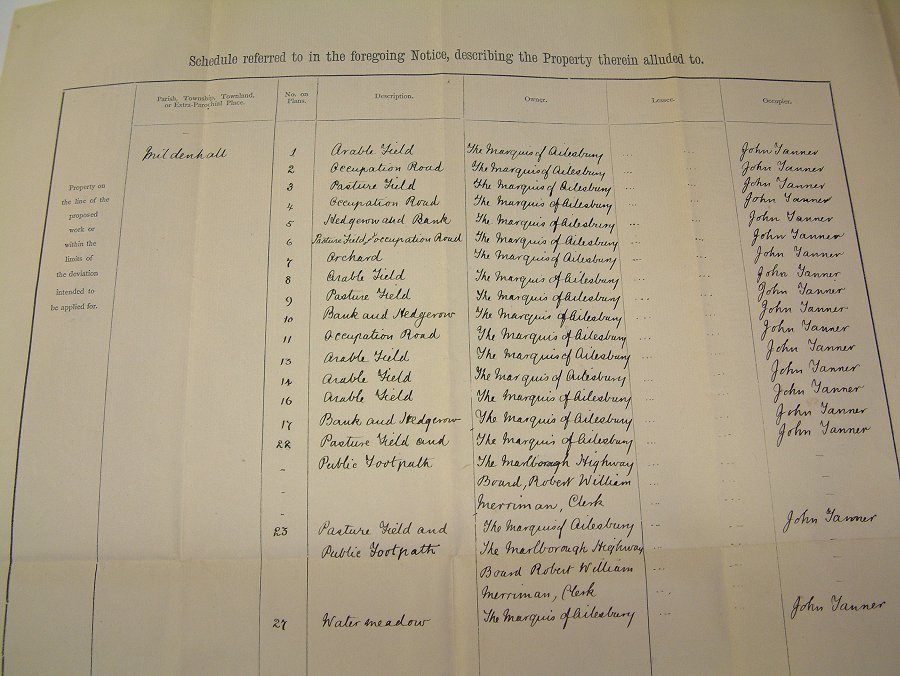 Schedule referred to in the foregoing Notice, describing the Property therein alluded to.
Parish, Township, Townland, or Extra-Parochial Place. No. on Plans. Description. Owner. Lessee. Occupier.
Property on
the line of the
proposed
work or
within the
limits of
the deviation
intended to
be applied for.
Mildenhall 1 Arable Field The Marquis of Ailesbury ... John Tanner
2 Occupation Road The Marquis of Ailesbury ... John Tanner
3 Pasture Field The Marquis of Ailesbury ... John Tanner
4 Occupation Road The Marquis of Ailesbury ... John Tanner
5 Hedgerow and Bank The Marquis of Ailesbury ... John Tanner
6 Pasture Field and occupation Road The Marquis of Ailesbury ... John Tanner
7 Orchard The Marquis of Ailesbury ... John Tanner
8 Arable Field The Marquis of Ailesbury ... John Tanner
9 Pasture Field The Marquis of Ailesbury ... John Tanner
10 Bank and Hedgerow The Marquis of Ailesbury ... John Tanner
11 Occupation Road The Marquis of Ailesbury ... John Tanner
13 Arable Field The Marquis of Ailesbury ... John Tanner
14 Arable Field The Marquis of Ailesbury ... John Tanner
16 Arable Field The Marquis of Ailesbury ... John Tanner
17 Bank and Hedgerow The Marquis of Ailesbury ... John Tanner
22 Pasture Field and The Marquis of Ailesbury ... John Tanner
- Public Footpath The Marlborough Highway ... -
- Board, Robert William ... -
- Merriman, Clerk ... -
23 Pasture Field and The Marquis of Ailesbury ... John Tanner
Public Footpath The Marlborough Highway ... -
Board Robert William ... -
Merriman, Clerk ... -
27 Water meadow The Marquis of Ailesbury ... John Tanner